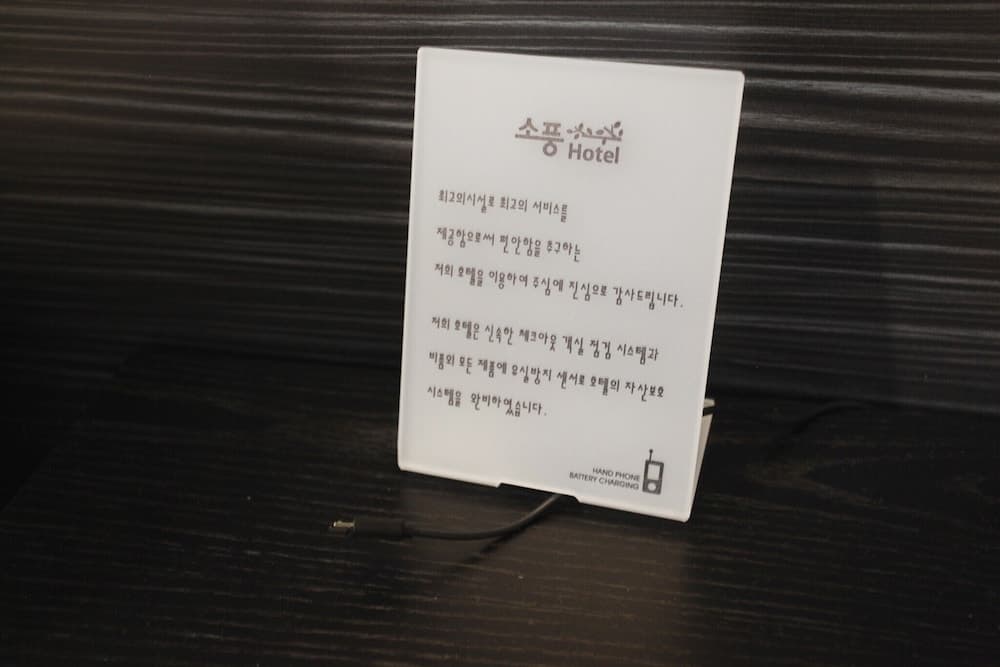 소풍
Hotel
최고의시설로 최고의 서비스를
제공함으로써 편안함을 추구하는
저희 호텔을 이용하여 주심에 진심으로 감사드립니다.
저희 호텔은 신속한 체크아웃 객실 점검 시스템과
비품외 모든 제품에 유실방지 센서로 호텔의 자산보호
시스템을 완비하였습니다.
HAND PHONE
BATTERY CHARGING